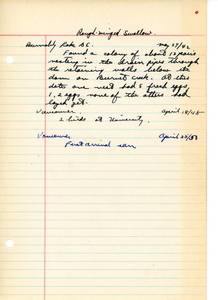 Rough-winged Swallow
Burnaby Lake B.C. May 27/62
Found a colony of about 12 pairs
nesting in the drain pipes through
the retaining walls below the
dam on Burnett Creek. At this
date one nest had 5 fresh eggs
1, 2 eggs none of the others had
layed yet.
Vancouver April 18/48
2 birds at University
Vancouver April 23/53
First arrival seen